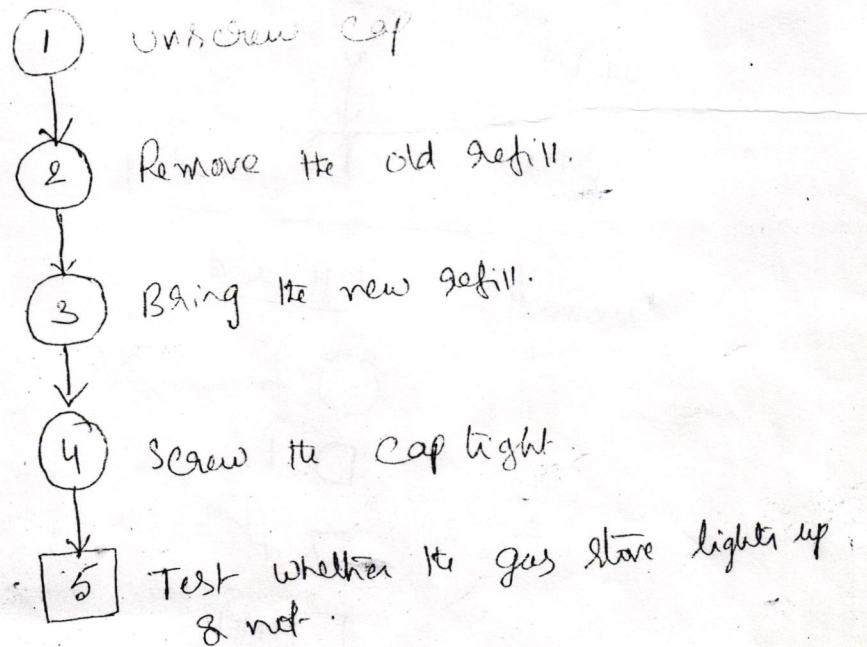 1 unscrew cap
2 Remove the old refill.
3 Bring the new refill.
4 Screw the cap tight
5 Test whether the gas stove lights up
& not.